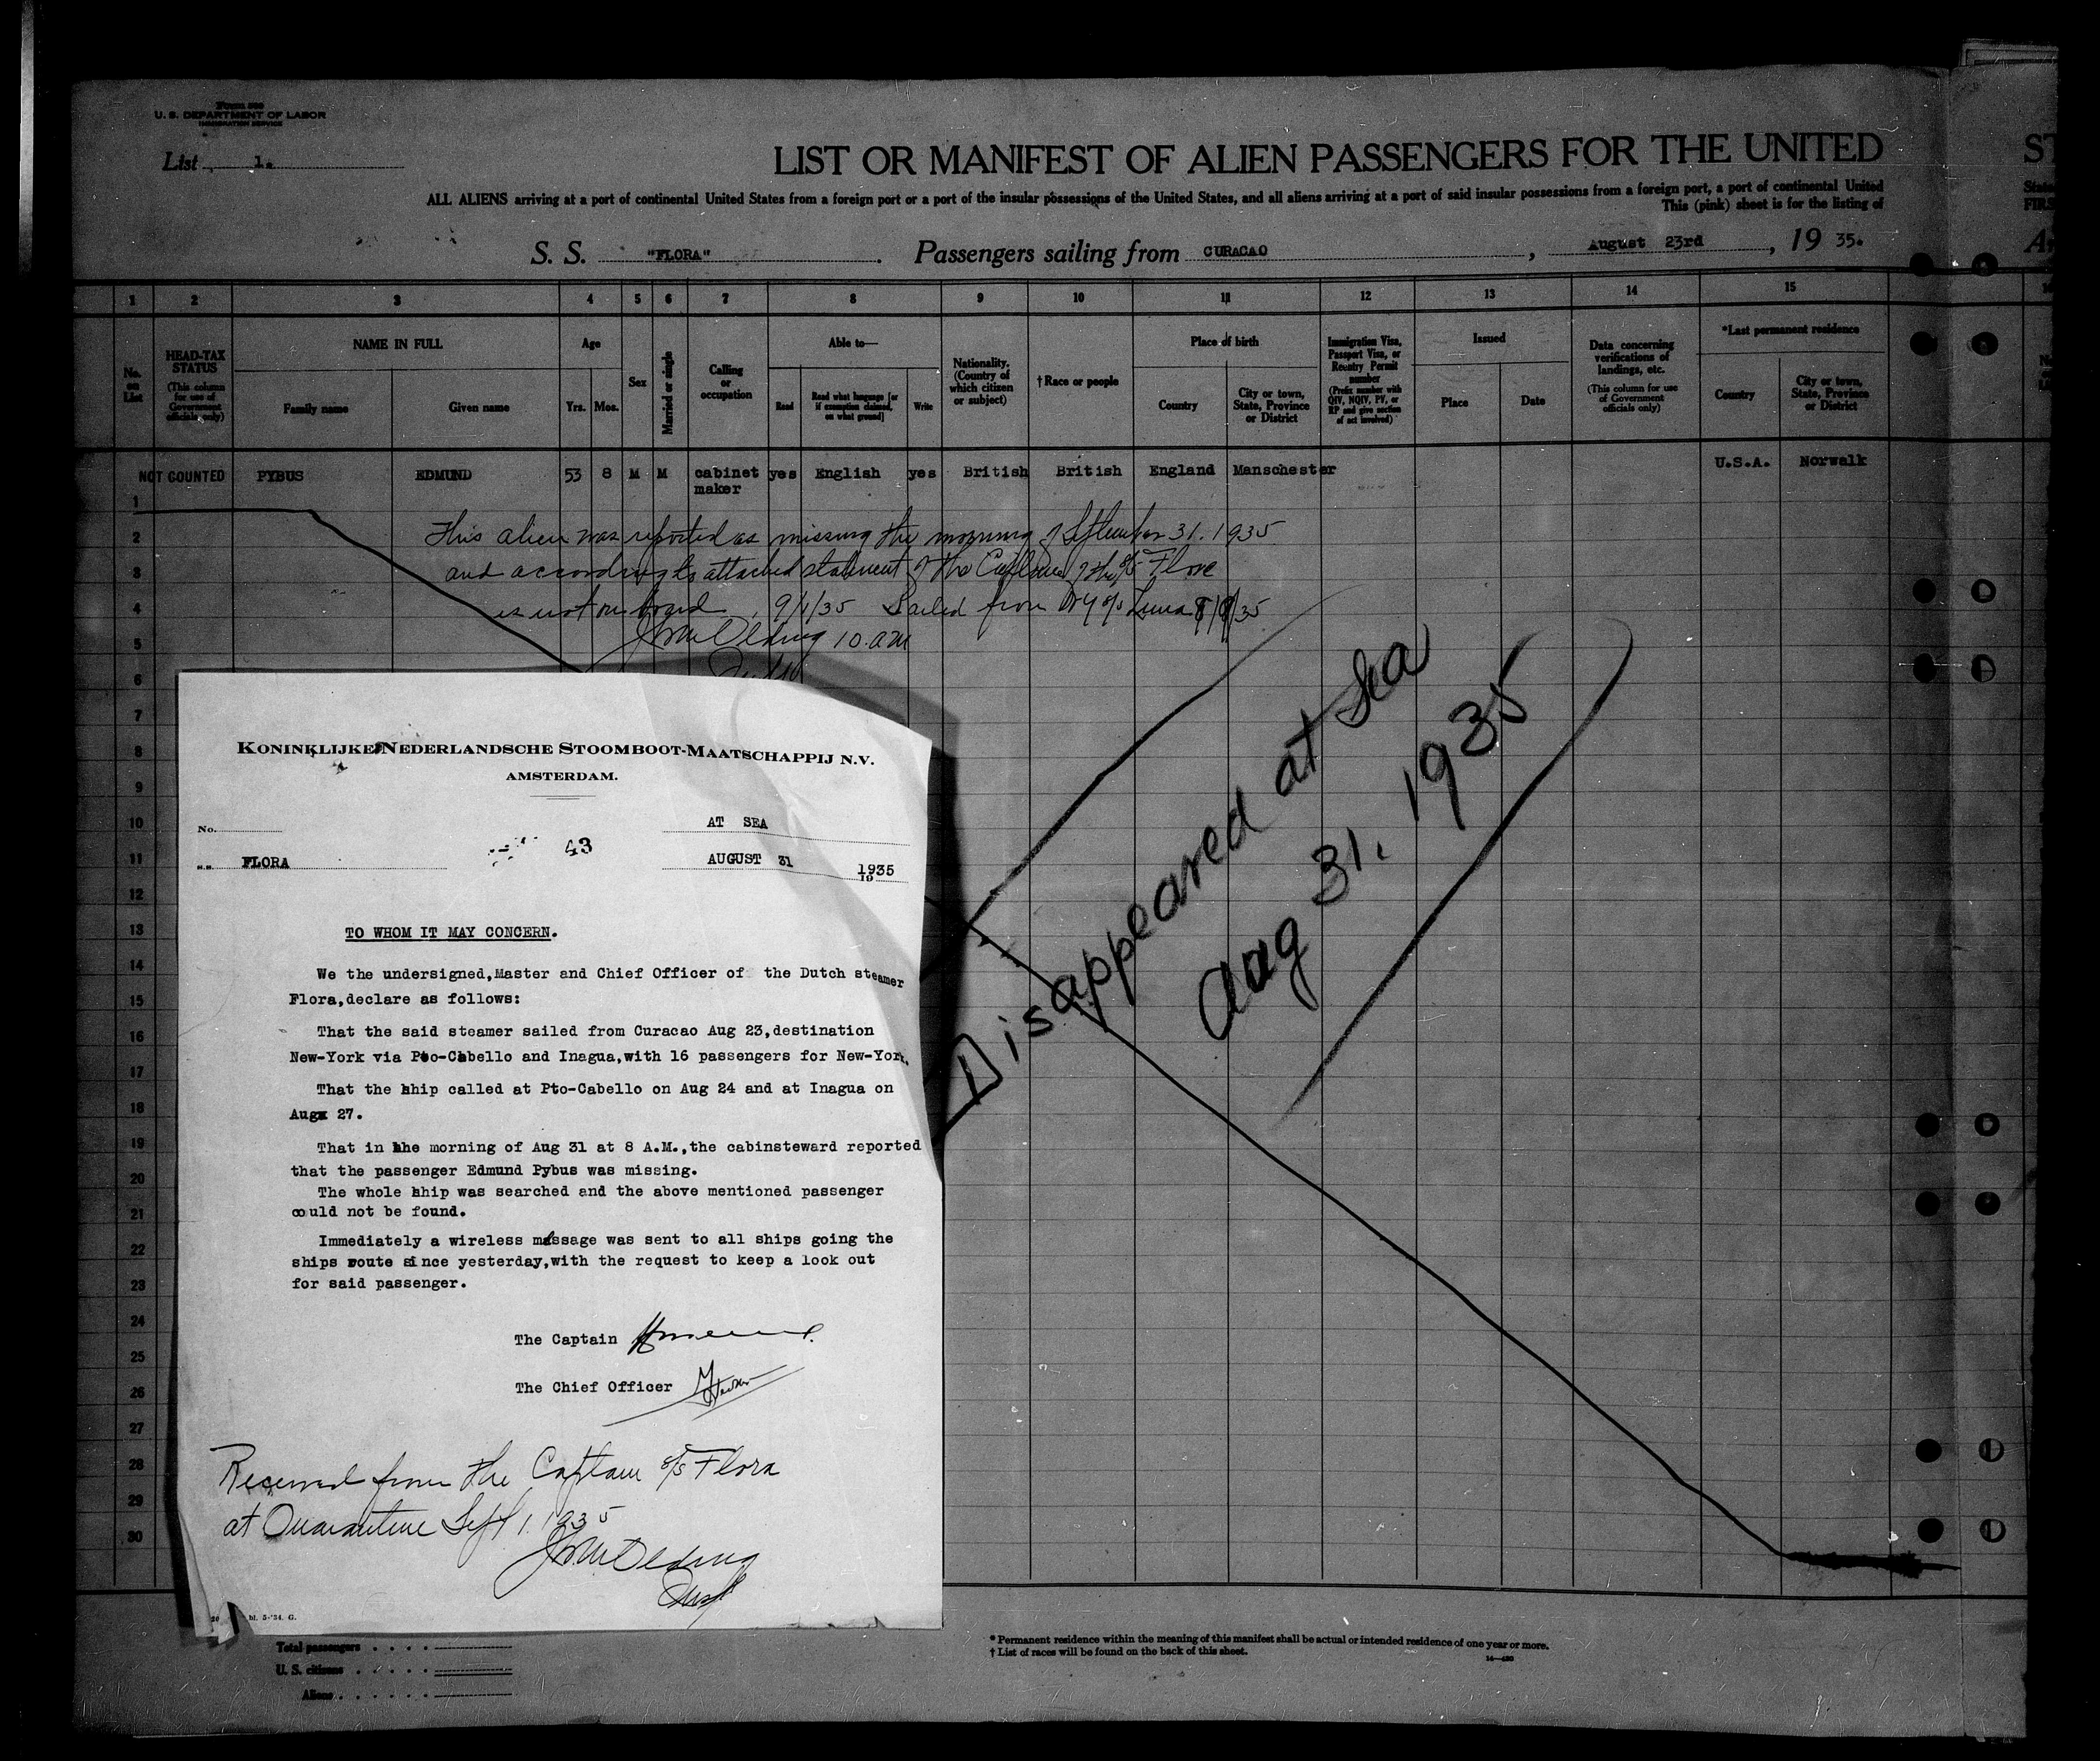 Form 500
U. S. DEPARTMENT OF LABOR
IMMIGRATION SERVICE
List 1.
LIST OR MANIFEST OF ALIEN PASSENGERS FOR THE UNITED
ST
ALL ALIENS arriving at a port of continental United States from a foreign port or a port of the insular possessions of the United States, and all aliens arriving at a port of said insular possessions from a foreign port, a port of continental United
State
This (pink) sheet is for the listing of
FIRS
S. S. "FLORA". Passengers sailing from CURACAO, August 23rd, 19 35.
1 2 3 4 5 6 7 8 9 10 11 12 13 14 15
No. on List
HEAD-TAX STATUS (This column for use of Government officials only)
NAME IN FULL
Family name
Given name
Age
Yrs. Mos.
Sex
Married or single
Calling or occupation
Able to—
Read
Read what language [or if exemption claimed, on what ground]
Write
Nationality. (Country of which citizen or subject)
† Race or people
Place of birth
Country
City or town, State, Province or District
Immigration Visa, Passport Visa, or Reentry Permit number (Prefix number with QIV, NQIV, PV, or RP and give section of act involved)
Issued
Place
Date
Data concerning verifications of landings, etc. (This column for use of Government officials only)
*Last permanent residence
Country
City or town, State, Province or District
NOT COUNTED PYBUS EDMUND 53 8 M M cabinet maker yes English yes British British England Manschester U.S.A. Norwalk
1
2
3
4
5
6
7
8
9
10
11
12
13
14
15
16
17
18
19
20
21
22
23
24
25
26
27
28
29
30
This alien was reported as missing the morning of September 31. 1935
and according to attached statement of the Captain of the s/s Flora
is not on board. 9/1/35 Sailed from NY s/s Luna 8/8/35
10. a.m
Disappeared at Sea
Aug 31, 1935
KONINKLIJKE NEDERLANDSCHE STOOMBOOT-MAATSCHAPPIJ N.V.
AMSTERDAM.
No.
AT SEA
43
s.s. FLORA
AUGUST 31 1935
19
TO WHOM IT MAY CONCERN.
We the undersigned,Master and Chief Officer of the Dutch steamer
Flora,declare as follows:
That the said steamer sailed from Curacao Aug 23,destination
New-York via Pto-Cabello and Inagua,with 16 passengers for New-York.
That the ship called at Pto-Cabello on Aug 24 and at Inagua on
Aug 27.
That in the morning of Aug 31 at 8 A.M.,the cabinsteward reported
that the passenger Edmund Pybus was missing.
The whole ship was searched and the above mentioned passenger
could not be found.
Immediately a wireless message was sent to all ships going the
ships route since yesterday,with the request to keep a look out
for said passenger.
The Captain
The Chief Officer
Received from the Captain s/s Flora
at Quarantine Sept 1. 1935
bl. 5-'34. G.
Total passengers
U. S. citizens
Aliens
* Permanent residence within the meaning of this manifest shall be actual or intended residence of one year or more.
† List of races will be found on the back of this sheet.
14—430